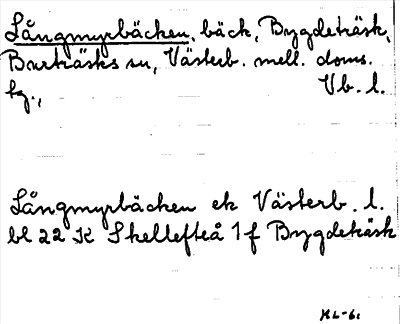 Långmyrbäcken, bäck, Bygdeträsk,
Burträsks sn, Västerb. mell. doms.
kg., Vb. l.
Långmyrbäcken ek Västerb. l.
bl 22 K Skellefteå 1 f Bygdeträsk